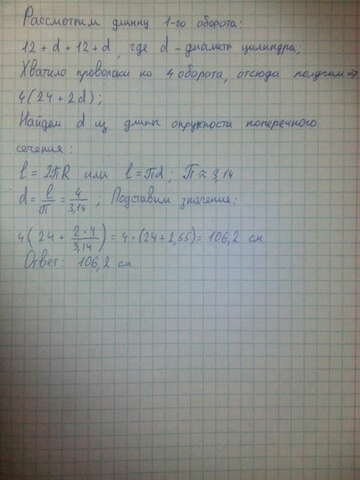 Рассмотрим длину 1-го оборота:
12 + d + 12 + d, где d - диаметр цилиндра;
Хватило проволоки на 4 оборота, отсюда получим ⇒
4(24 + 2d);
Найдем d из длины окружности поперечного
сечения:
l = 2πR или l = πd; π ≈ 3,14
d = l/π = 4/3,14; Подставим значения:
4(24 + 2·4/3,14) = 4·(24+2,55) = 106,2 см
Ответ: 106,2 см